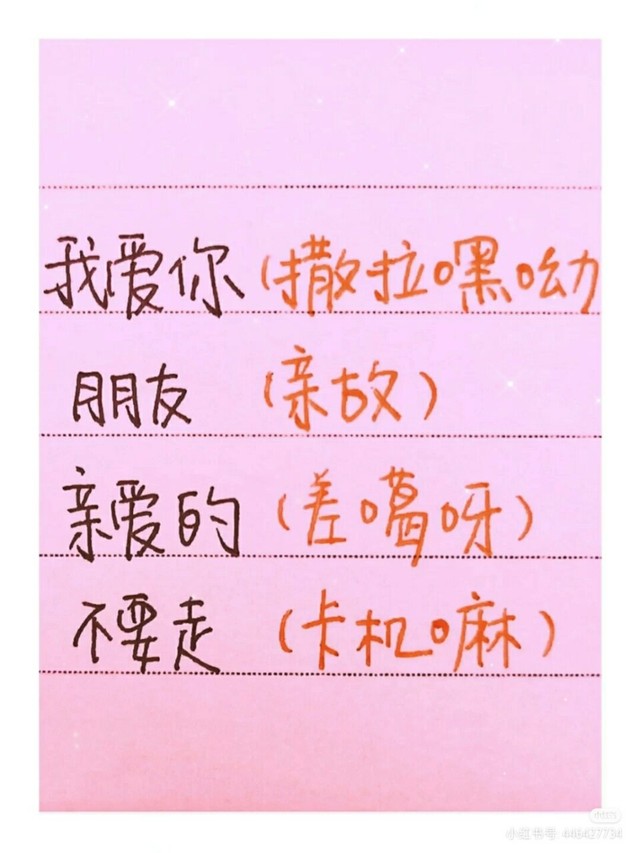 我爱你（撒拉嘿呦
朋友（亲故）
亲爱的（差噶呀）
不要走（卡机嘛）
小红书号: 448427734